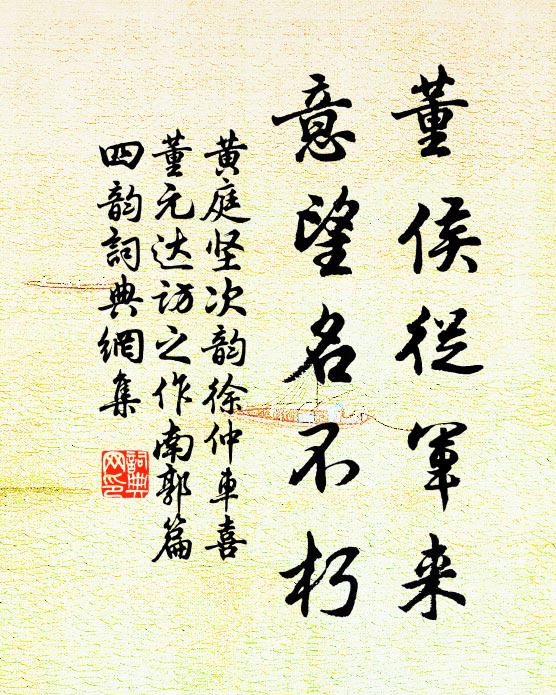 董侯從军来
意望名不朽
黄庭坚次韵徐仲車喜
董元达访之作南郭篇
四韵詞典網集
詞典
网印